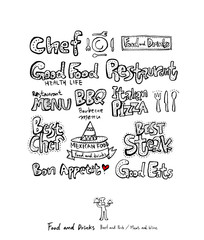 Chef
Food and Drinks
Good Food
HEALTH LIFE
Restaurant
Restaurant
MENU
BBQ
Barbecue
menu
Italian
PIZZA
Best
Chef
MEXICAN FOOD
Food and drinks
BEST
Steak
Bon Appetit
Good Eats
Food and Drinks Beef and Pork / Meats and Wine